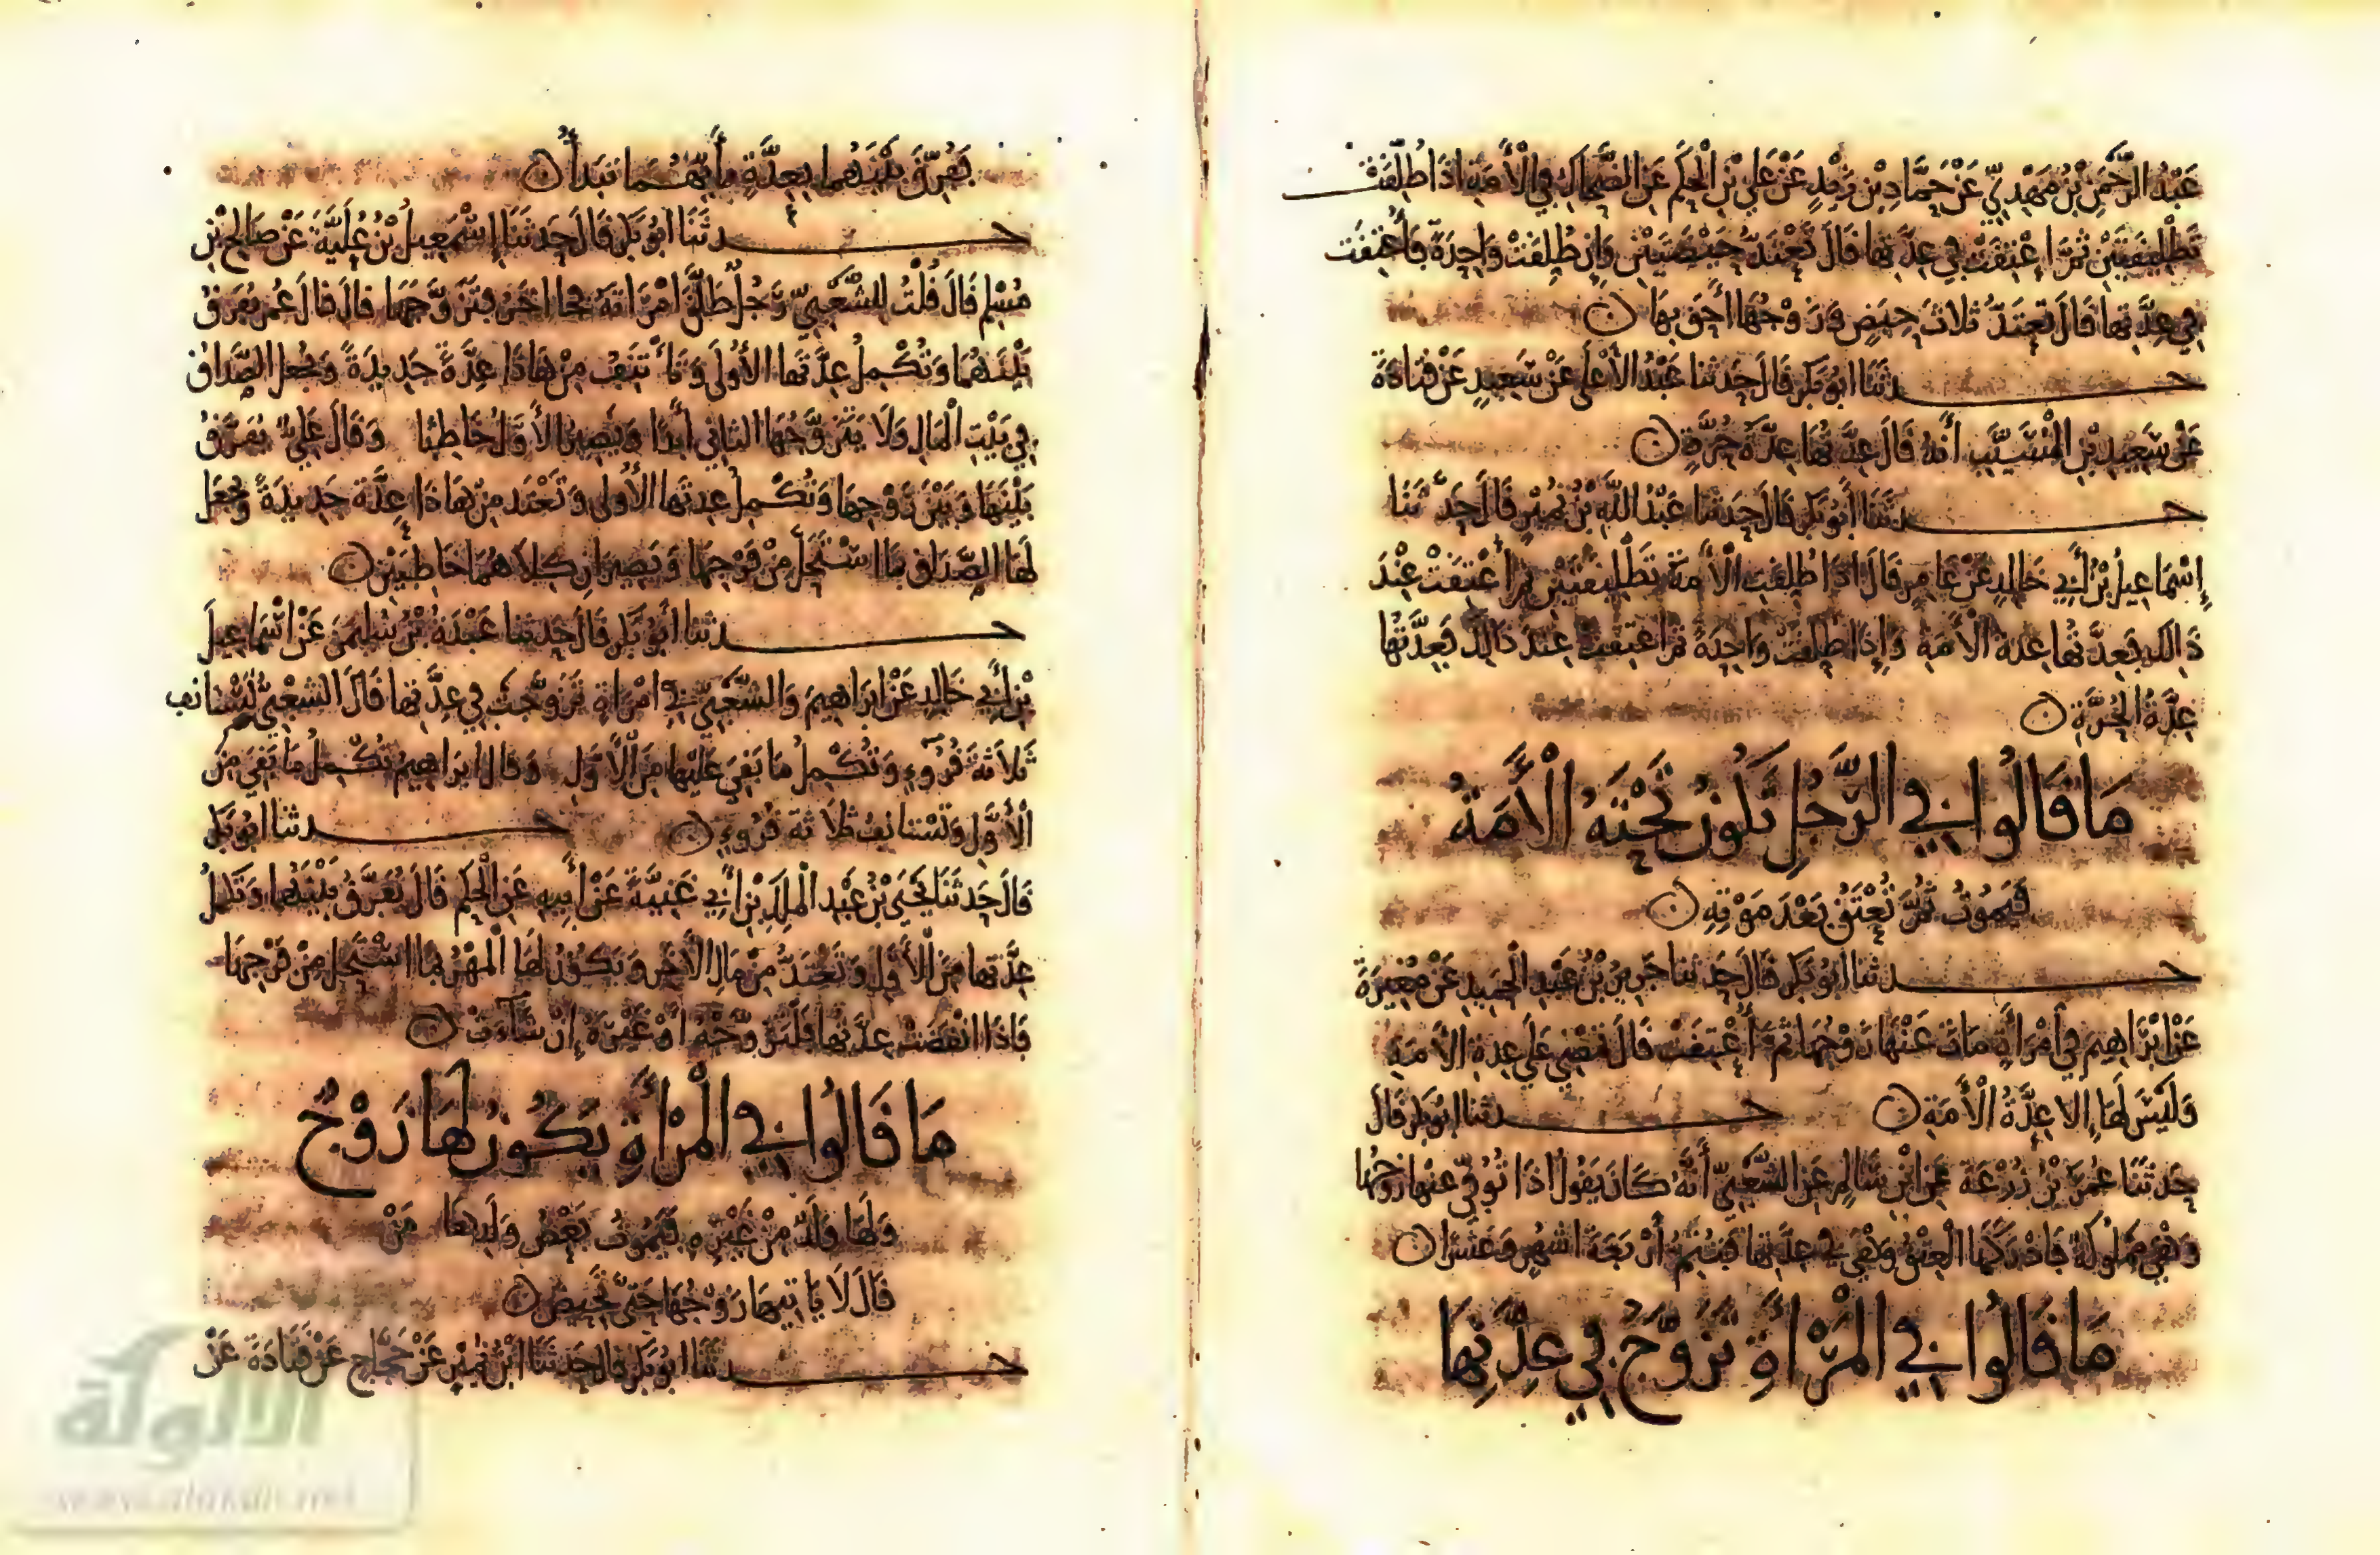 عَبْدُ الرَّحْمَنِ بْنُ مَهْدِيٍّ عَنْ حَمَّادِ بْنِ زَيْدٍ عَنْ عَلِيِّ بْنِ الْحَكَمِ عَنِ الضَّحَّاكِ فِي الْأَمَةِ اذَا طُلِّقَتْ
تَطْلِيقَتَيْنِ ثُمَّ اعْتِقَتْ فِي عِدَّتِهَا قَالَ تَعْتَدُّ حَيْضَتَيْنِ وَإِنْ طُلِقَتْ وَاحِدَةً فَأُعْتِقَتْ
فِي عِدَّتِهَا قَالَ تَعْتَدُّ ثَلَاثَ حِيَضٍ وَزَوْجُهَا أَحَقُّ بِهَا
حدثَنَا ابُو بَكرٍ قَالَ حَدثنا عَبْدُ الأَعْلَى عَنْ سَعِيدٍ عَنْ قَتَادَةَ
عَنْ سَعِيدِ بْنِ الْمُسَيَّبِ أَنَّهُ قَالَ عِدَّتُهَا عِدَّةُ حُرَّةٍ
حدثَنَا أَبُو بَكرٍ قَالَ حَدثنا عَبْدُ اللَّهِ بْنُ نُمَيْرٍ قَالَ حَدَّثَنَا
إِسْمَاعِيلُ بْنُ أَبِي خَالِدٍ عَنْ عَامِرٍ قَالَ اذَا طُلِقَتِ الْأَمَةُ تَطْلِيقَتَيْنِ ثُمَّ أُعْتِقَتْ عِنْدَ
ذَالِكَ فَعِدَّتُهَا عِدةُ الْأَمَةِ وَإِذَا طُلِقَتْ وَاحِدَةً ثُمَّ اعتِقَتْ عِندَ ذَالِكَ فَعِدَّتُهَا
عِدَّةُ الْحُرَّةِ
مَا قَالُوا فِي الرَّجُلِ تَكُونُ تَحْتَهُ الْأَمَةُ
فَيَمُوتُ ثُمَّ تُعْتَقُ بَعْدَ مَوْتِهِ
حدثنا ابُو بَكرٍ قَالَ حَدثنا جَرِيرُ بْنُ عَبْدِ الْحَمِيدِ عَنْ مُغِيرَةَ
عَنْ ابْرَاهِيمَ فِي امْرَأَةٍ مَاتَ عَنْهَا زَوْجُهَا ثُمَّ أُعْتِقَتْ قَالَ تَمْضِي عَلَى عِدةِ الْأَمَةِ
وَلَيْسَ لَهَا إِلا عِدَّةُ الْأَمَةِ حدثنا ابُو بَكرٍ قَالَ
حَدثَنَا عُمَرُ بْنُ زُرْعَةَ عَنِ ابْنِ سَالِمٍ عَنِ الشَّعْبِيِّ أَنَّهُ كَانَ يَقُولُ اذَا تُوُفِّيَ عنها زَوْجُهَا
وَهْيَ مَمْلُوكَةٌ فَادْرَكَهَا الْعِتْقُ وَهْيَ فِي عِدَّتِهَا فَتُتِمُّ أَرْبَعَةَ اشهُرٍ وَعَشْرًا
مَا قَالُوا فِي الْمَرْأَةِ تَزَوَّجُ فِي عِدَّتِهَا
يُفَرَّقُ بَيْنَهُمَا بِعِدَّةِ أَيِّهِمَا تَبْدَأُ
حدثَنَا ابُو بَكرٍ قَالَ حَدثَنَا إِسْمَعِيلُ بْنُ عُلَيَّةَ عَنْ صَالِحِ بْنِ
مُسْلِمٍ قَالَ قُلْتُ لِلشَّعْبِيِّ رَجُلٌ طَلَّقَ امْرَاتَهُ فجا اخَرُ فَتَزَوَّجَهَا قَالَ قَالَ عُمَرُ يُفَرَّقُ
بَيْنَهُمَا وَتُكْمِلُ عِدَّتَهَا الأُولَى وَتَأْتَنِفُ مِنْ هَاذَا عِدَّةً جَدِيدَةً وَيُجْعَلُ الصَّدَاقُ
فِي بَيْتِ الْمَالِ وَلَا يَتَزَوَّجُهَا الثانِي أَبَدًا وَيَصِيرُ الأَوَّلُ خَاطِبًا وَقَالَ عَلِيٌّ يُفَرَّقُ
بَيْنَهَا وَبَيْنَ زَوْجِهَا وَتُكْمِلُ عِدتَهَا الأُولَى وَتَعْتَدُ مِنْ هَاذَا عِدَّةً جَدِيدَةً وَيُجْعَلُ
لَهَا الصَّدَاقُ بِمَا اسْتَحَلَّ مِنْ فَرْجِهَا وَيَصِيرَانِ كِلَاهُمَا خَاطِبَيْنِ
حدثنا أَبُو بَكرٍ قَالَ حَدثنا عَبْدَةُ بْنُ سُلَيْمَنَ عَنْ اسْمَاعِيلَ
بْنِ أَبِي خَالِدٍ عَنْ ابْرَاهِيمَ وَالشَّعْبِيِّ فِي امْرَاةٍ تَزَوَّجَتْ فِي عِدَّتِهَا قَالَ الشَعْبِيُّ تَسْتَانِفُ
ثَلَاثَةَ قُرُوءٍ وَتُكْمِلُ مَا بَقِيَ عَلَيْهَا مِنَ الْأَوَّلِ وَقَالَ ابرَاهِيمُ تُكْمِلُ مَا بَقِيَ مِنَ
الْأَوَّلِ وَتَسْتَانِفُ ثَلَاثَةَ قُرُوءٍ حدثنا ابُو بَكرٍ
قَالَ حَدثَنَا يَحْيَى بْنُ عَبْدِ الْمَلِكِ بْنِ أَبِي غَنِيَّةَ عَنْ أَبِيهِ عَنِ الْحَكَمِ قَالَ يُفَرَّقُ بَيْنَهُمَا وَتُكْمِلُ
عِدَّتَهَا مِنَ الْأَوَّلِ وَتَعْتَدُّ مِنْ مَالِ الْآخَرِ وَيَكُونُ لَهَا الْمَهْرُ بِمَا اسْتَحَلَّ مِنْ فَرْجِهَا
فَاذَا انْقَضَتْ عِدَّتُهَا فَلْتَزَوَّجْهُ اوْ غَيْرَهُ إِنْ شَآءَتْ
مَا قَالُوا فِي الْمَرْأَةِ يَكُونُ لَهَا زَوْجٌ
وَلَهَا وَلَدٌ مِنْ غَيْرِهِ فَيَمُوتُ بَعْضُ وَلَدِهَا مَنْ
قَالَ لَا يَاتِيهَا زَوْجُهَا حَتَّى تَحِيضَ
حدثَنَا ابُو بَكرٍ قَالَ حَدثَنَا ابْنُ نُمَيْرٍ عَنْ حَجَّاجٍ عَنْ قَتَادَةَ عَنْ
الألوكة
www.alukah.net